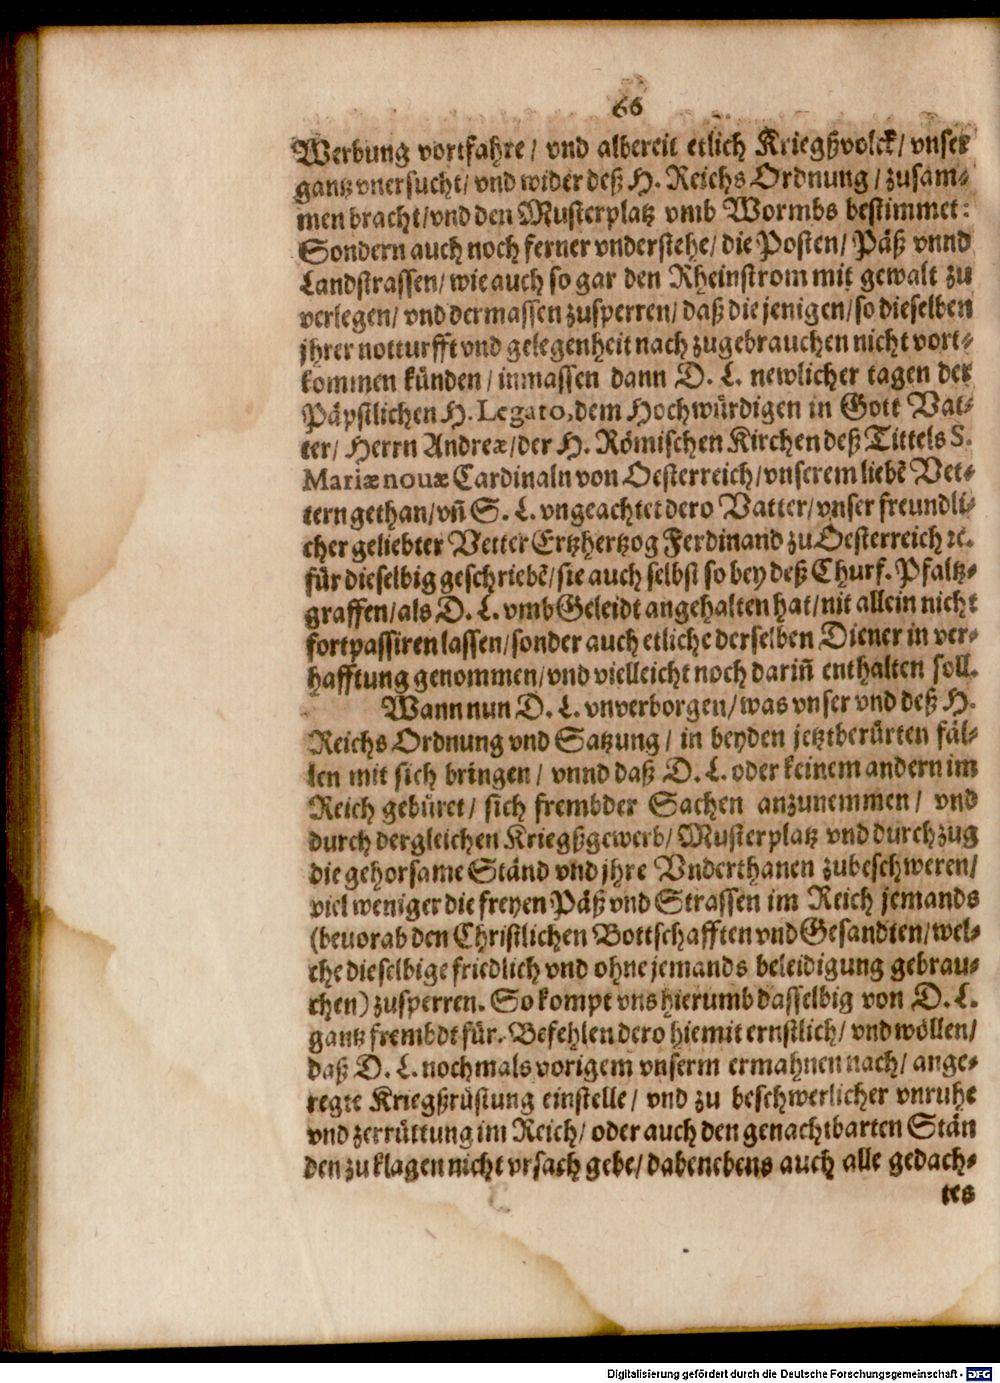 66
Werbung vortfahre/ vnd albereit etlich Kriegßvolck/ vnser
gantz vnersucht/ vnd wider deß H. Reichs Ordnung/ zusam-
men bracht/ vnd den Musterplatz vmb Wormbs bestimmet:
Sondern auch noch ferner vnderstehe/ die Posten/ Päß vnnd
Landstrassen/ wie auch so gar den Rheinstrom mit gewalt zu
verlegen/ vnd dermassen zusperren/ daß die jenigen/ so dieselben
jhrer notturfft vnd gelegenheit nach zugebrauchen nicht vort-
kommen künden/ inmassen dann D. L. newlicher tagen der
Päpstlichen H. Legato, dem Hochwürdigen in Gott Vat-
ter/ Herrn Andreæ/ der H. Römischen Kirchen deß Tittels S.
Mariæ nouæ Cardinaln von Oesterreich/ vnserem liebẽ Vet-
tern gethan/ vñ S. L. vngeachtet dero Vatter/ vnser freundli-
cher geliebter Vetter Ertzhertzog Ferdinand zu Oesterreich ꝛc.
für dieselbig geschriebẽ/ sie auch selbst so bey deß Churf. Pfaltz-
graffen/ als D. L. vmb Geleidt angehalten hat/ nit allein nicht
fortpassiren lassen/ sonder auch etliche derselben Diener in ver-
hafftung genommen/ vnd vielleicht noch dariñ enthalten soll.
Wann nun D. L. vnverborgen/ was vnser vnd deß H.
Reichs Ordnung vnd Satzung/ in beyden jetztberürten fäl-
len mit sich bringen/ vnnd daß D. L. oder keinem andern im
Reich gebüret/ sich frembder Sachen anzunemmen/ vnd
durch dergleichen Kriegßgewerb/ Musterplatz vnd durchzug
die gehorsame Ständ vnd jhre Vnderthanen zubeschweren/
viel weniger die freyen Päß vnd Strassen im Reich jemands
(beuorab den Christlichen Bottschafften vnd Gesandten/ wel-
che dieselbige friedlich vnd ohne jemands beleidigung gebrau-
chen) zusperren. So kompt vns hierumb dasselbig von D. L.
gantz frembdt für. Befehlen dero hiemit ernstlich/ vnd wöllen/
daß D. L. nochmals vorigem vnserm ermahnen nach/ ange-
regte Kriegßrüstung einstelle/ vnd zu beschwerlicher vnruhe
vnd zerrüttung im Reich/ oder auch den genachtbarten Stän
den zu klagen nicht vrsach gebe/ dabenebens auch alle gedach-
tes
Digitalisierung gefördert durch die Deutsche Forschungsgemeinschaft - DFG